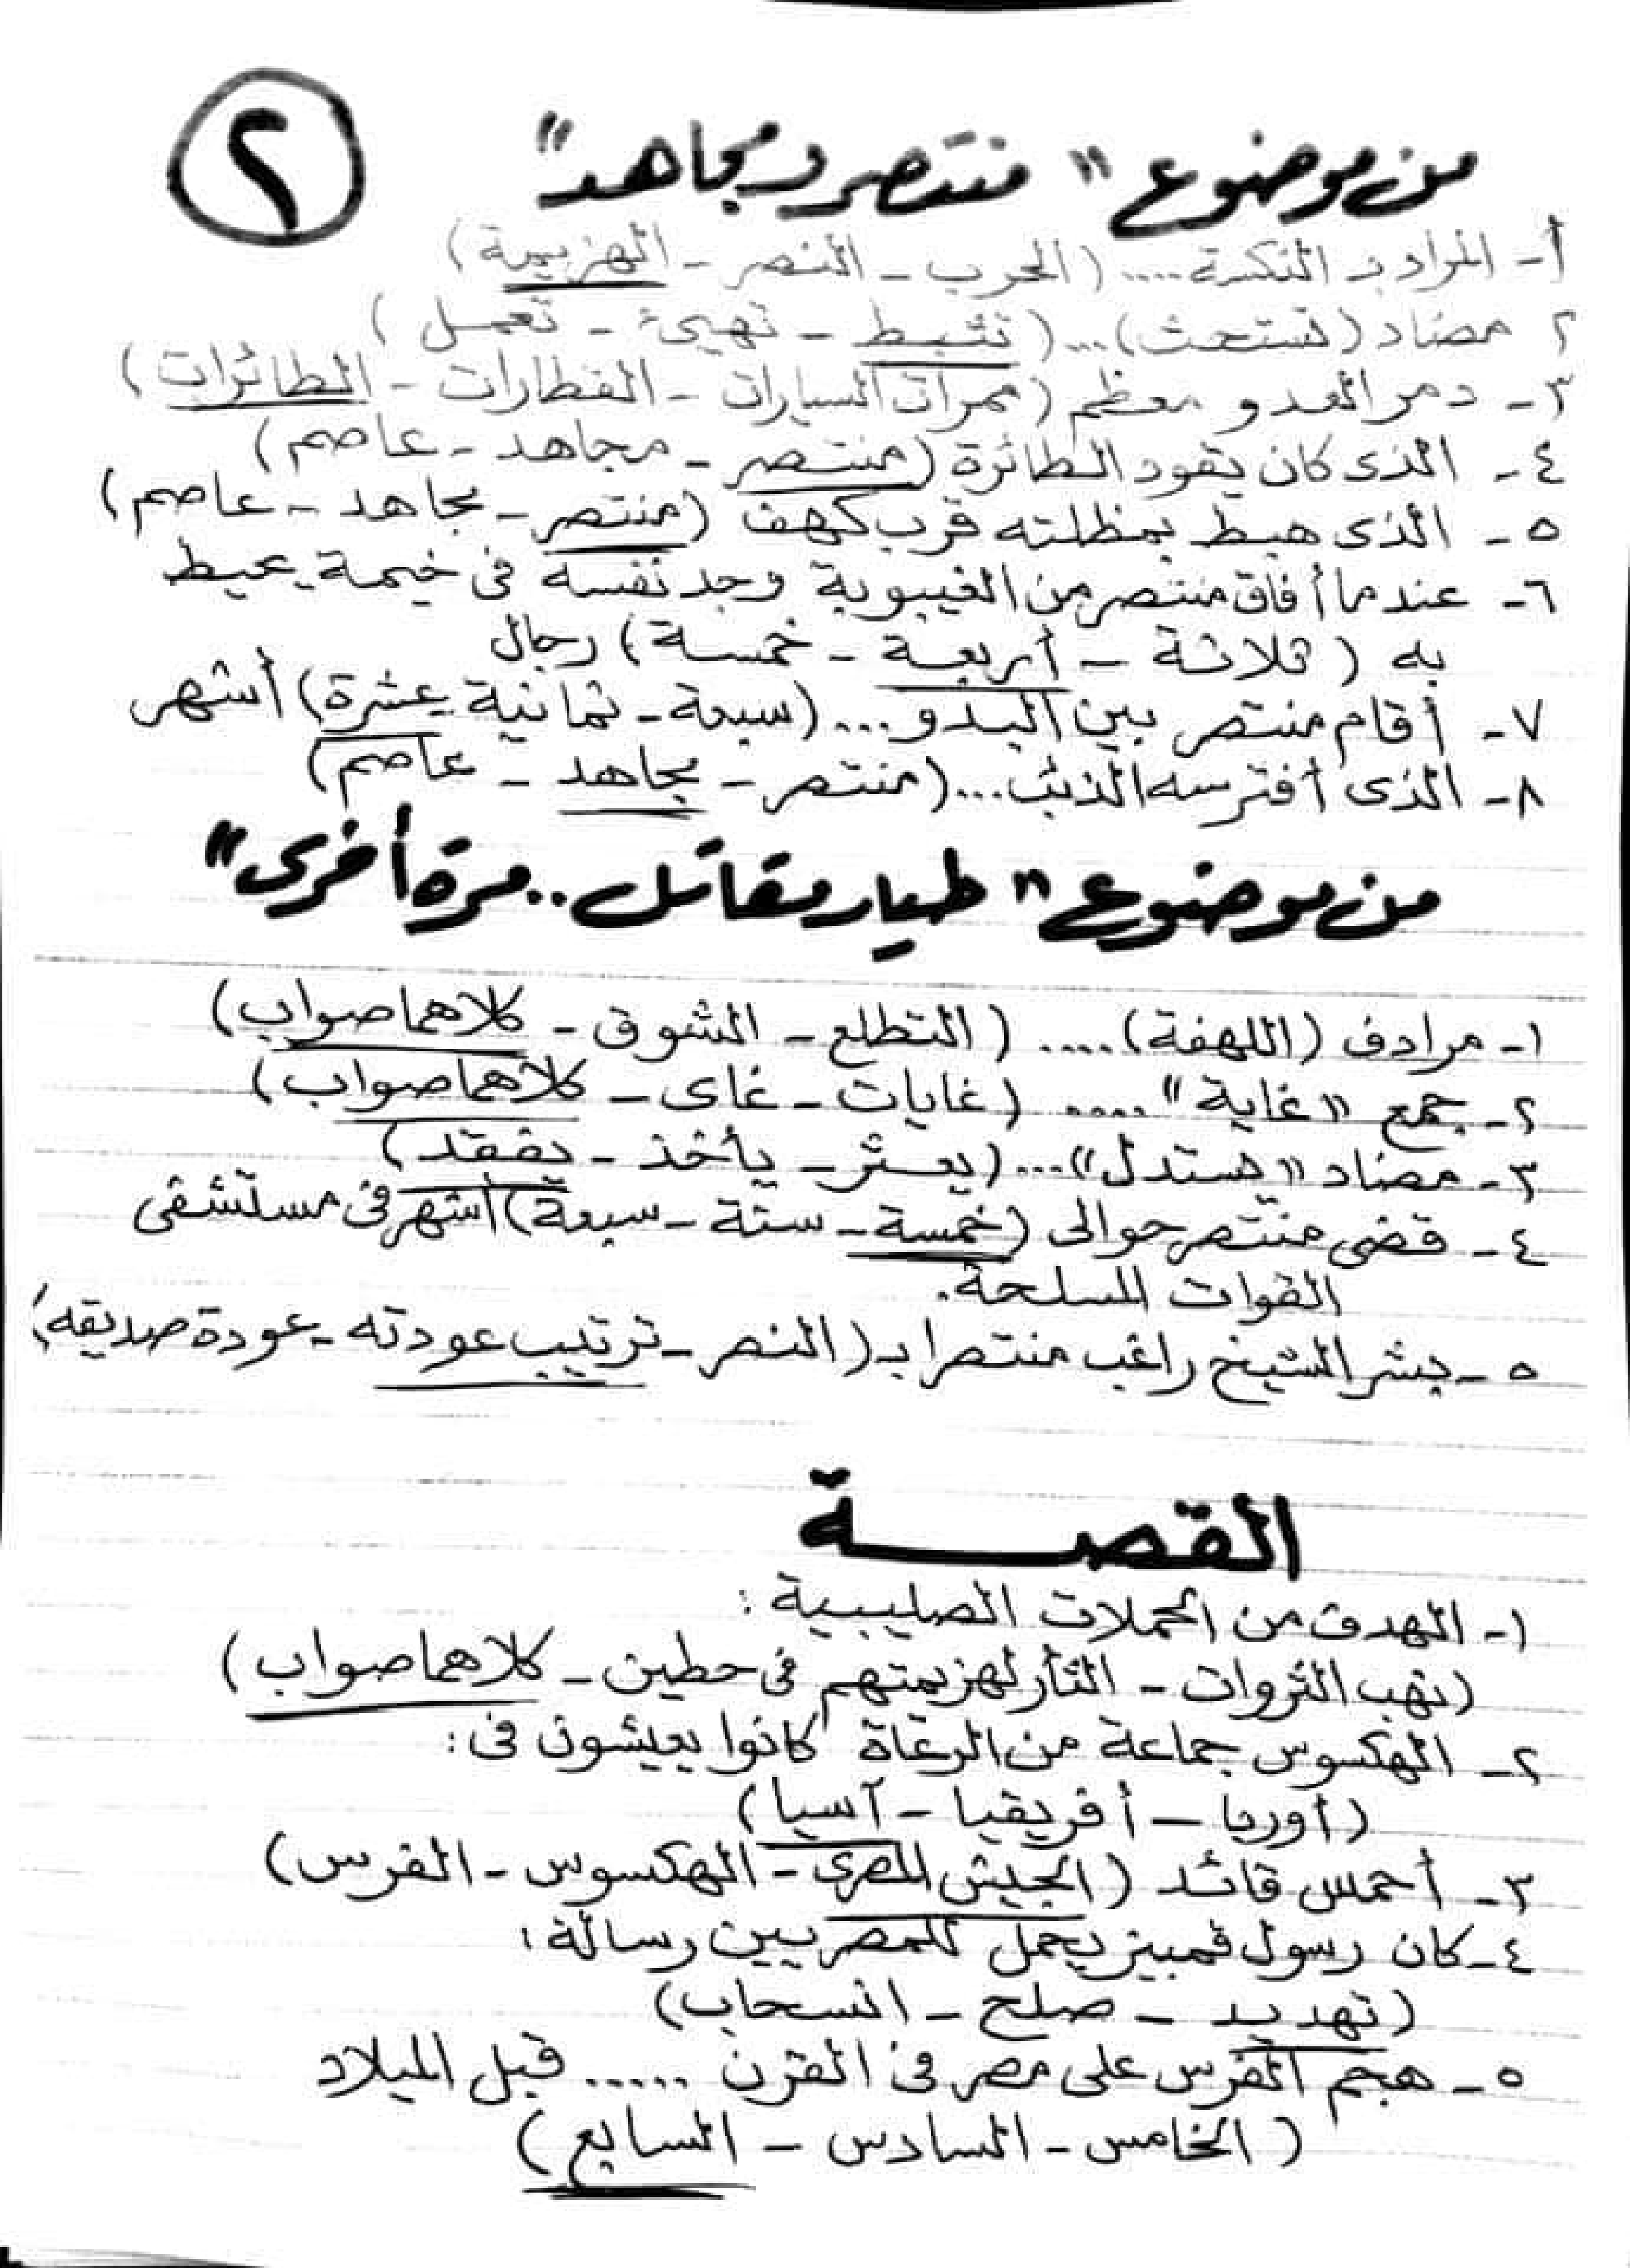 ٢
من موضوع "منتصر ومجاهد"
١- المراد بـ النكسة .... (الحرب - النصر - الهزيمة)
٢ مضاد (تستحث) ... (تثبط - تهيئ - تعمل)
٣- دمر العدو معظم (ممرات السيارات - القطارات - الطائرات)
٤- الذى كان يقود الطائرة (منتصر - مجاهد - عاصم)
٥- الذى هبط بمظلته قرب كهف (منتصر - مجاهد - عاصم)
٦- عندما أفاق منتصر من الغيبوبة وجد نفسه فى خيمة يحيط
به (ثلاثة - أربعة - خمسة) رجال
٧- أقام منتصر بين البدو ... (سبعة - ثمانية - عشرة) أشهر
٨- الذى افترسه الذئب ... (منتصر - مجاهد - عاصم)
من موضوع "طيار مقاتل .. مرة أخرى"
١- مرادف (اللهفة) .... (التطلع - الشوق - كلاهما صواب)
٢- جمع "غاية" .... (غايات - غاى - كلاهما صواب)
٣- مضاد "يستدل" ... (يعثر - يأخذ - يفقد)
٤- قضى منتصر حوالى (خمسة - ستة - سبعة) أشهر فى مستشفى
القوات المسلحة.
٥- بشر الشيخ راغب منتصرا بـ (النصر - ترتيب عودته - عودة صديقه)
القصة
١- الهدف من الحملات الصليبية :
(نهب الثروات - الثأر لهزيمتهم فى حطين - كلاهما صواب)
٢- الهكسوس جماعة من الرعاة كانوا يعيشون فى :
(أوربا - أفريقيا - آسيا)
٣- أحمس قائد (الجيش المصرى - الهكسوس - الفرس)
٤- كان رسول قمبيز يحمل للمصريين رسالة :
(تهديد - صلح - انسحاب)
٥- هجم الفرس على مصر فى القرن ..... قبل الميلاد
(الخامس - السادس - السابع)